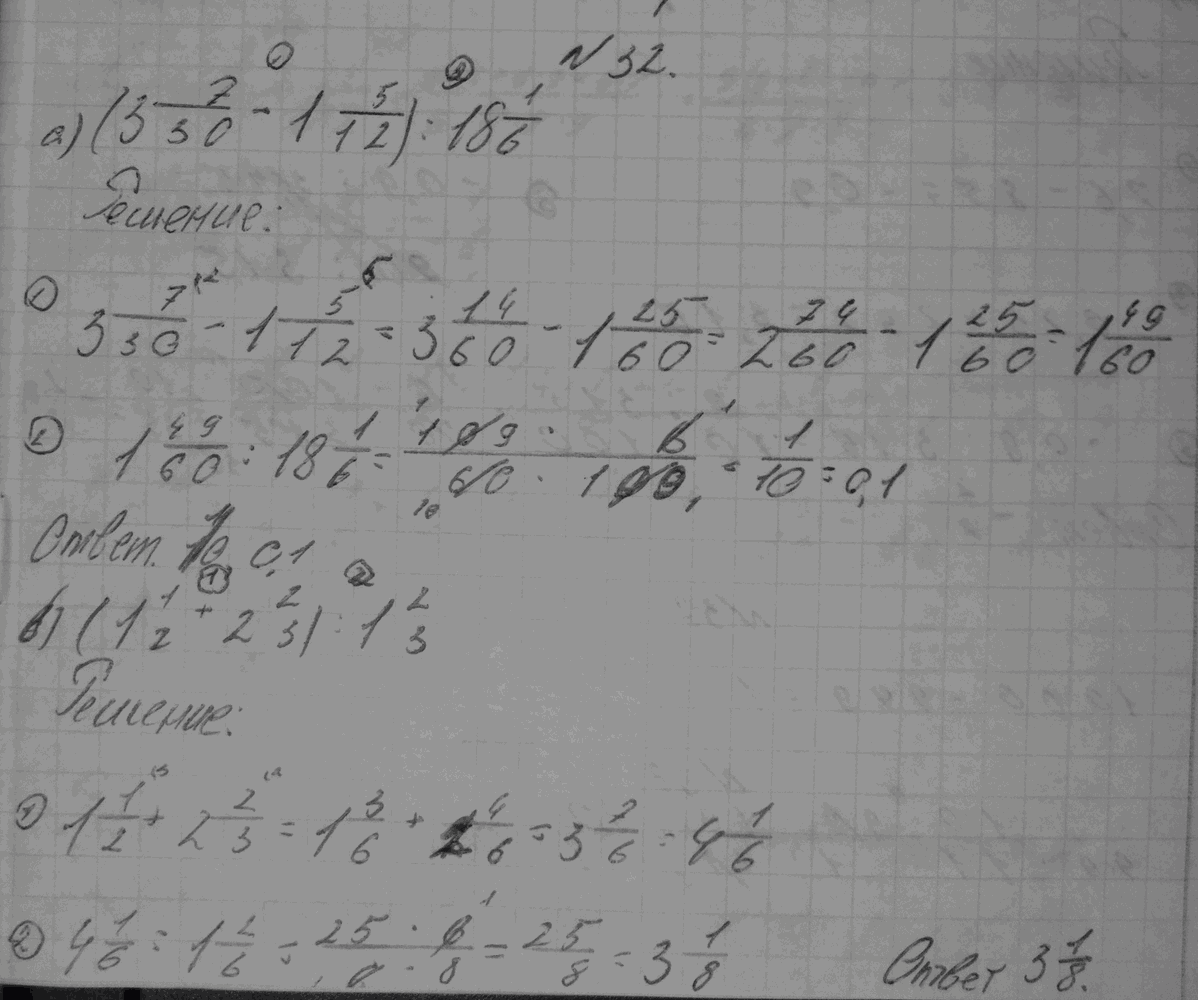 № 32.
а) (3 7/30 - 1 5/12) : 18 1/6
Решение:
① 3 7/30 - 1 5/12 = 3 14/60 - 1 25/60 = 2 74/60 - 1 25/60 = 1 49/60
② 1 49/60 : 18 1/6 = 109 · 6 / 60 · 109 = 1/10 = 0,1
Ответ. 0,1
в) (1 1/2 + 2 2/3) : 1 2/3
Решение:
① 1 1/2 + 2 2/3 = 1 3/6 + 2 4/6 = 3 7/6 = 4 1/6
② 4 1/6 : 1 2/6 = 25 · 6 / 6 · 8 = 25/8 = 3 1/8
Ответ 3 1/8.